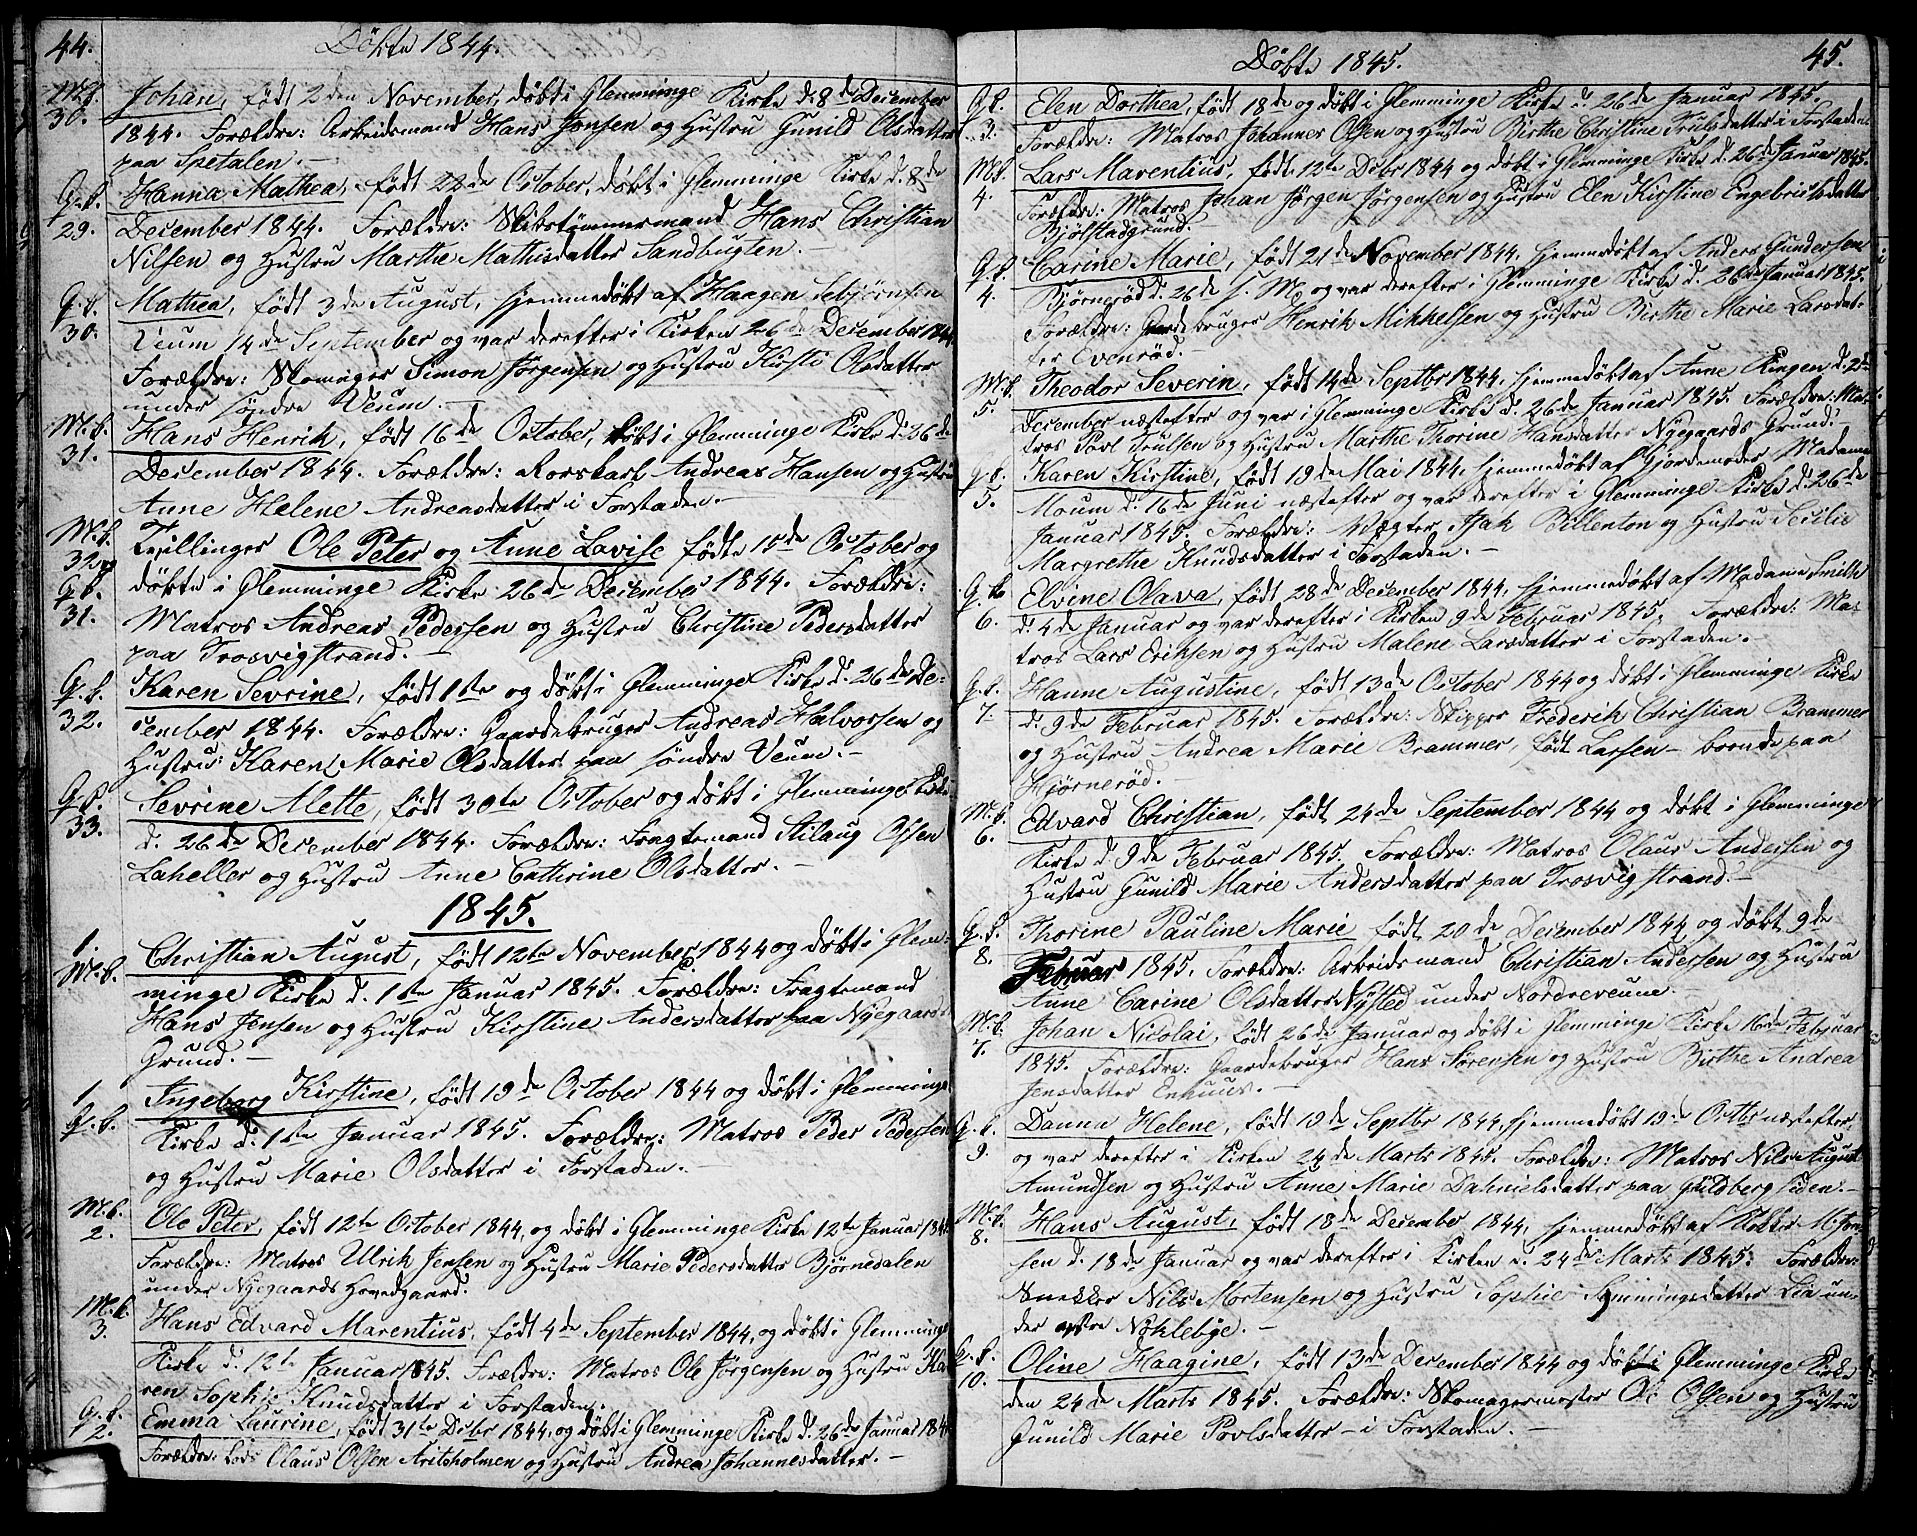 44.
Døbte 1844.
M.b. 30. Johan, født 2den November, døbt i Glemminge Kirke d. 8de December
1844. Forældre: Arbeidsmand Hans Jonsen og Hustru Gunild Olsdatter
paa Spetalen.-
G.b. Hanna Mathea, født 22de October, døbt i Glemminge Kirke d. 8de
29. December 1844. Forældre: Skibstømmermand Hans Christian
Nilsen og Hustru Marthe Mathisdatter Sandbugten.-
G.b. Mathea, født 3de August, hjemmedøbt af Haagen Sebjørnsen
30. Veum 14de September og var derefter i Kirken 26de December 1844.
Forældre: Skomager Simon Jørgensen og Hustru Kirsti Olsdatter
under søndre Veum.-
M.b. Hans Henrik, født 16de October, døbt i Glemminge Kirke d. 26de
31. December 1844. Forældre: Rorskarl Andreas Hansen og Hustru
Anne Helene Andreasdatter i Forstaden.-
M.b. Tvillinger Ole Peter og Anne Lovise fødte 15de October og
32 og G.b. døbte i Glemminge Kirke 26de December 1844. Forældre:
31. Matros Andreas Pedersen og Hustru Christine Pedersdatter
paa Trosvigstrand.-
G.b. Karen Sevrine, født 1ste og døbt i Glemminge Kirke d. 26de De-
32. cember 1844. Forældre: Gaardebruger Andreas Halvorsen og
Hustru: Karen Marie Olsdatter paa søndre Veum.-
G.b. Sevrine Alette, født 30te October og døbt i Glemminge Kirke
33. d. 26de December 1844. Forældre: Fragtemand Stilaug Olsen
Laheller og Hustru Anne Cathrine Olsdatter.-
1845.
1. Christian August, født 12te November 1844 og døbt i Glem-
M.b. minge Kirke d. 1ste Januar 1845. Forældre: Fragtemand
Hans Jensen og Hustru Kirstine Andersdatter paa Nyegaards
Grund.-
1. Ingeborg Kirstine, født 19de October 1844 og døbt i Glemminge
G.b. Kirke d. 1ste Januar 1845. Forældre: Matros Peder Pedersen
og Hustru Marie Olsdatter i Forstaden.-
M.b. Ole Peter, født 12te October 1844, og døbt i Glemminge Kirke 12te Januar 1845.
2. Forældre: Matros Ulrik Jensen og Hustru Marie Pedersdatter Bjørnedalen
under Nyegaards Hovedgaard.
M.b. Hans Edvard Marentius, født 4de September 1844, og døbt i Glemminge
3. Kirke d. 12te Januar 1845. Forældre: Matros Ole Jørgensen og Hustru Ka-
ren Sophie Knudsdatter i Forstaden.
G.b. Emma Laurine, født 31te Decbr 1844, og døbt i Glemminge Kirke d. 26de Januar 1845
2. Forældre: Lods Olaus Olsen Aritsholmen og Hustru Andrea Johannesdatter.-
Døbte 1845.
45.
G.b. Elen Dorthea, født 18de og døbt i Glemminge Kirke d. 26de Januar 1845.
3. Forældre: Matros Johannes Olsen og Hustru Birthe Christine Trulsdatter i Forstaden
M.b. Lars Marentius, født 12te Decbr 1844 og døbt i Glemminge Kirke d. 26de Januar 1845.
4. Forældre: Matros Johan Jørgen Jørgensen og Hustru Elen Kirstine Engebrictsdatter
Bjølstadgrund.
G.b. Carine Marie, født 21de November 1844, hjemmedøbt af Anders Gundersen
4. Bjørnerød d. 26de s. M og var derefter i Glemminge Kirke d. 26de Januar 1845.
Forældre: Gaardebruger Henrik Mikkelsen og Hustru Birthe Marie Larsdat-
ter Evenrød.-
M.b. Theodor Severin, født 14de Septbr 1844, hjemmedøbt af Anne Ringen d. 2de
5. December næstefter og var i Glemminge Kirke d. 26de Januar 1845. Forældre: Ma-
tros Povl Trulsen og Hustru Marthe Thorine Hansdatter Nyegaards Grund.
G.b. Karen Kirstine, født 19de Mai 1844, hjemmedøbt af Gjordemoder Madame
5. Moum d. 16de Juni næstefter og var derefter i Glemminge Kirke d. 26de
Januar 1845. Forældre: Vægter Isak Billenton og Hustru Secilie
Margrethe Knudsdatter i Forstaden.-
G.b. Elvine Olava, født 28de December 1844, hjemmedøbt af Madame Smith
6. d. 4de Januar og var derefter i Kirken 9de Februar 1845. Forældre: Ma-
tros Lars Eriksen og Hustru Malene Larsdatter i Forstaden.-
G.b. Hanne Augustine, født 13de October 1844 og døbt i Glemminge Kirke
7. d. 9de Februar 1845. Forældre: Skipper Frederik Christian Brammer
og Hustru Andrea Marie Brammer, født Larsen - boende paa
Kjørnerød.-
M.b. Edvard Christian, født 24de September 1844 og døbt i Glemminge
6. Kirke d. 9de Februar 1845. Forældre: Matros Olaus Andersen og
Hustru Gunild Marie Andersdatter paa Trosvigstrand.-
G.b. Thorine Pauline Marie født 20de December 1844 og døbt 9de
8. Februar 1845. Forældre: Arbeidsmand Christian Andersen og Hustru
Anne Carine Olsdatter Nysted under Nordreveum.-
M.b. Johan Nicolai, født 26de Januar og døbt i Glemminge Kirke 16de Februar
7. 1845. Forældre: Gaardebruger Hans Sørensen og Hustru Birthe Andrea
Jensdatter Enhuus.-
G.b. Danna Helene, født 19de Septbr 1844, hjemmedøbt 19de Octbr næstefter,
9. og var derefter i Kirken 24de Marts 1845. Forældre: Matros Nils August
Amundsen og Hustru Anne Marie Dahnielsdatter paa Guldbergsiden.-
M.b. Hans August, født 18de December 1844, hjemmedøbt af Klokker M. Jon-
8. sen d. 18de Januar og var derefter i Kirken d. 24de Marts 1845. Forældre:
Snekker Nils Mortensen og Hustru Sophie Semmingsdatter Lia un-
der østre Nøklebye.-
G.b. Oline Haagine, født 13de December 1844 og døbt i Glemminge Kirke
10. den 24de Marts 1845. Forældre: Skomagermester Ole Olsen og Hustru
Gunild Marie Povlsdatter - i Forstaden.-